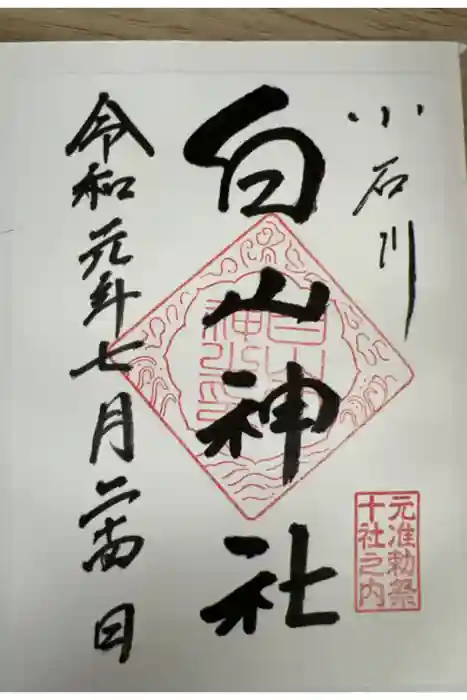 小石川
白山神社
白山
神社
元准勅祭
十社之内
令和元年七月二十四日